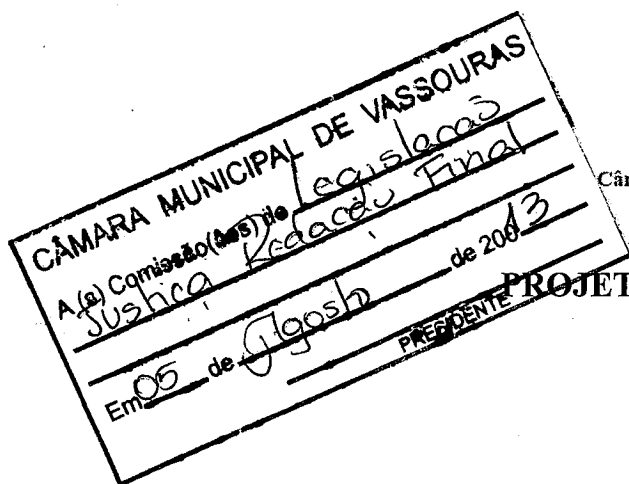 CÂMARA MUNICIPAL DE VASSOURAS
A (s) Comissão(ões) de Legislacao
Justiça Redacão Final
Em 05 de Agosto de 20013
PRESIDENTE
Câr
PROJET